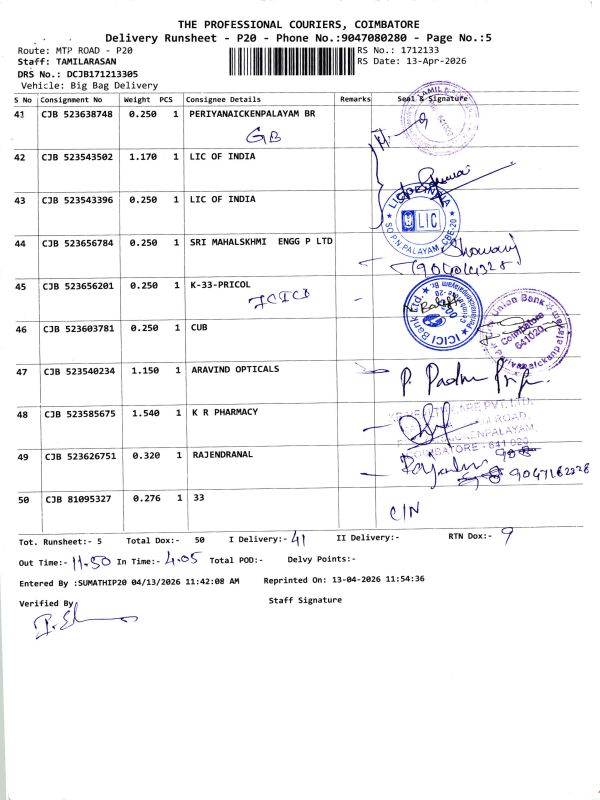 THE PROFESSIONAL COURIERS, COIMBATORE
Delivery Runsheet - P20 - Phone No.:9047080280 - Page No.:5
Route: MTP ROAD - P20 RS No.: 1712133
Staff: TAMILARASAN RS Date: 13-Apr-2026
DRS No.: DCJB171213305
Vehicle: Big Bag Delivery
S No Consignment No Weight PCS Consignee Details Remarks Seal & Signature
41 CJB 523638748 0.250 1 PERIYANAICKENPALAYAM BR
GB
42 CJB 523543502 1.170 1 LIC OF INDIA
43 CJB 523543396 0.250 1 LIC OF INDIA
LIC
44 CJB 523656784 0.250 1 SRI MAHALSKHMI ENGG P LTD
45 CJB 523656201 0.250 1 K-33-PRICOL
ICICI
ICICI Bank Ltd.
46 CJB 523603781 0.250 1 CUB
Union Bank
Coimbatore
641020
47 CJB 523540234 1.150 1 ARAVIND OPTICALS
48 CJB 523585675 1.540 1 K R PHARMACY
49 CJB 523626751 0.320 1 RAJENDRANAL
50 CJB 81095327 0.276 1 33
C/N
Tot. Runsheet:- 5 Total Dox:- 50 I Delivery:- 41 II Delivery:- RTN Dox:- 9
Out Time:- 11.50 In Time:- 4.05 Total POD:- Delvy Points:-
Entered By :SUMATHIP20 04/13/2026 11:42:08 AM Reprinted On: 13-04-2026 11:54:36
Verified By Staff Signature